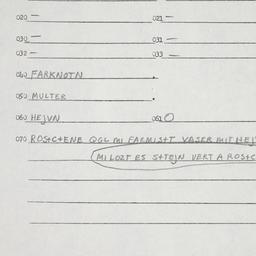 020 — 021 —
030 — 031 —
032 — 033 —
040 FARKNOTN .
050 MULTER .
060 HEJVN 061 O
070 ROS+C+ENE QGL MI FARMIS+T VASER MIT HEJ
MI LOZT ES S+TEJN VERT A ROS+C